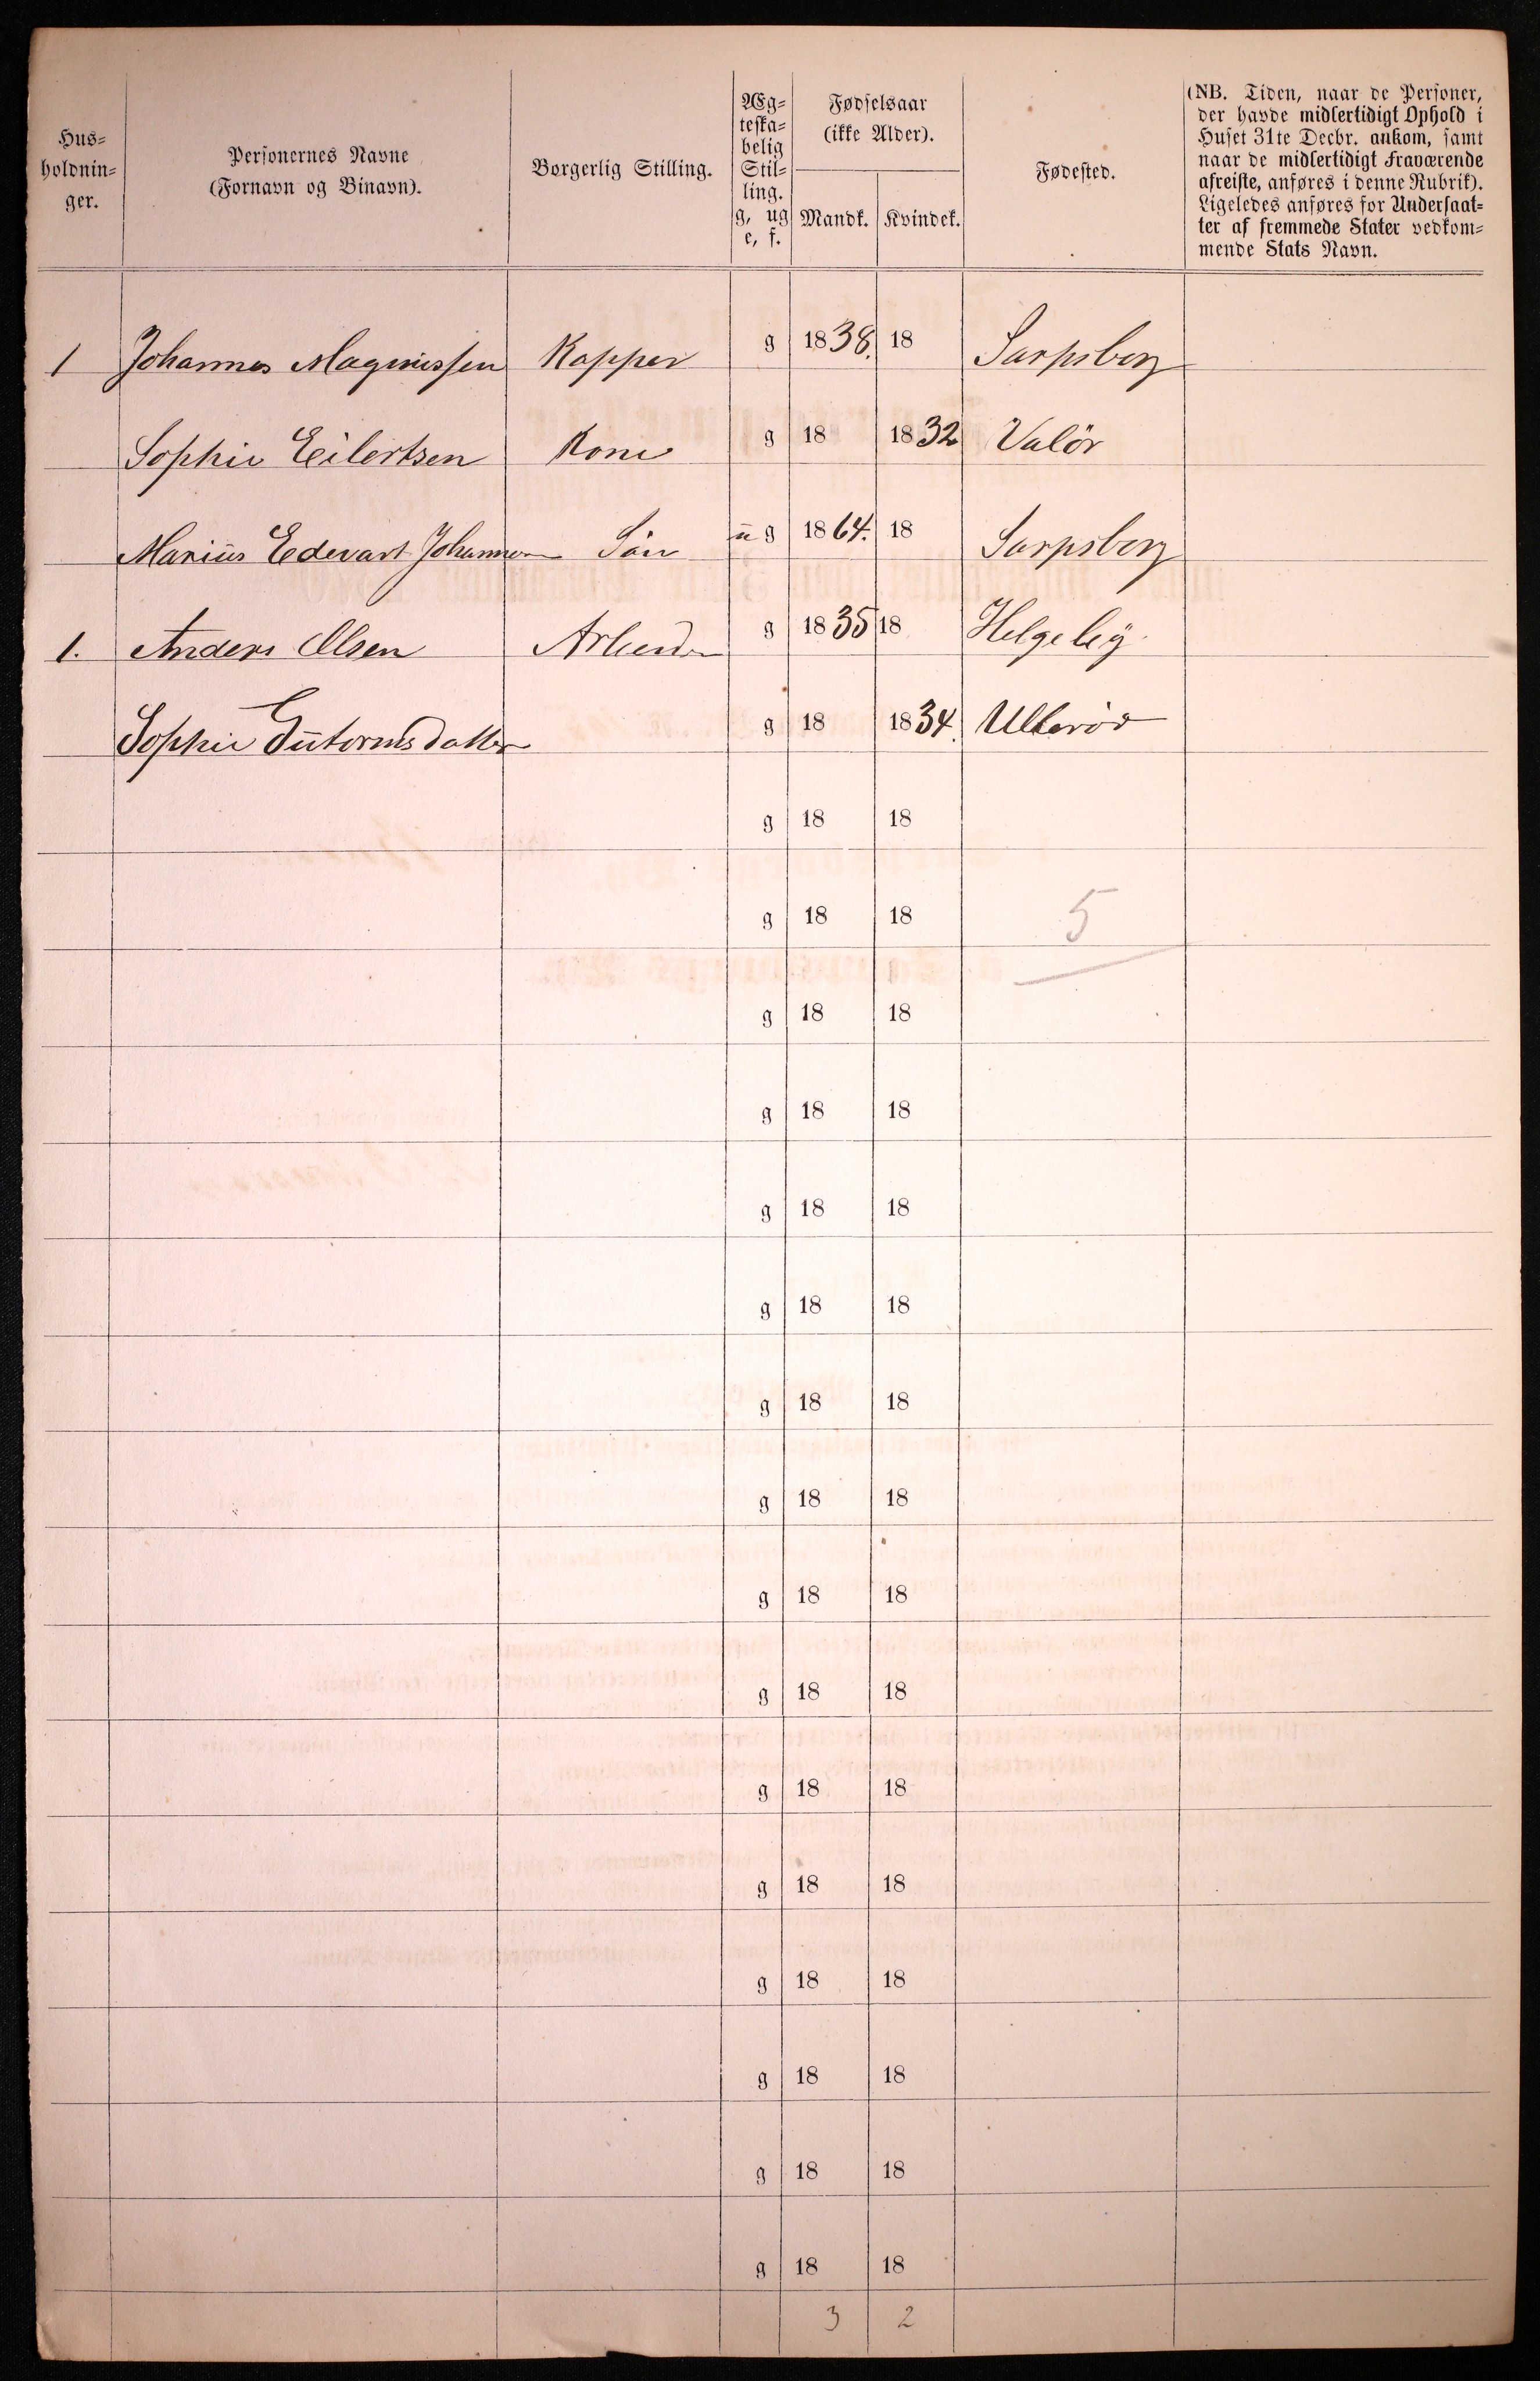 Hus=
holdnin=
ger.
Personernes Navne
(Fornavn og Binavn).
Borgerlig Stilling.
Æg=
teska=
belig
Stil=
ling.
g, ug
e, f.
Fødselsaar
(ikke Alder).
Mandk. Kvindek.
Fødested.
(NB. Tiden, naar de Personer,
der havde midlertidigt Ophold i
Huset 31te Decbr. ankom, samt
naar de midlertidigt Fraværende
afreiste, anføres i denne Rubrik).
Ligeledes anføres for Undersaat=
ter af fremmede Stater vedkom=
mende Stats Navn.
1 Johannes Magnussen Kopper g 1838. 18 Sarpsborg
Sophie Eilertsen Kone g 18 1832 Valör
Marius Edevart Johannesen Sön ug 1864. 18 Sarpsborg
1. Anders Olsen Arbeider g 1835 18 Helgeby
Sophie Gutormsdatter g 18 1834. Ullerör
g 18 18
g 18 18 5
g 18 18
g 18 18
g 18 18
g 18 18
g 18 18
g 18 18
g 18 18
g 18 18
g 18 18
g 18 18
g 18 18
g 18 18
g 18 18
g 18 18
3 2